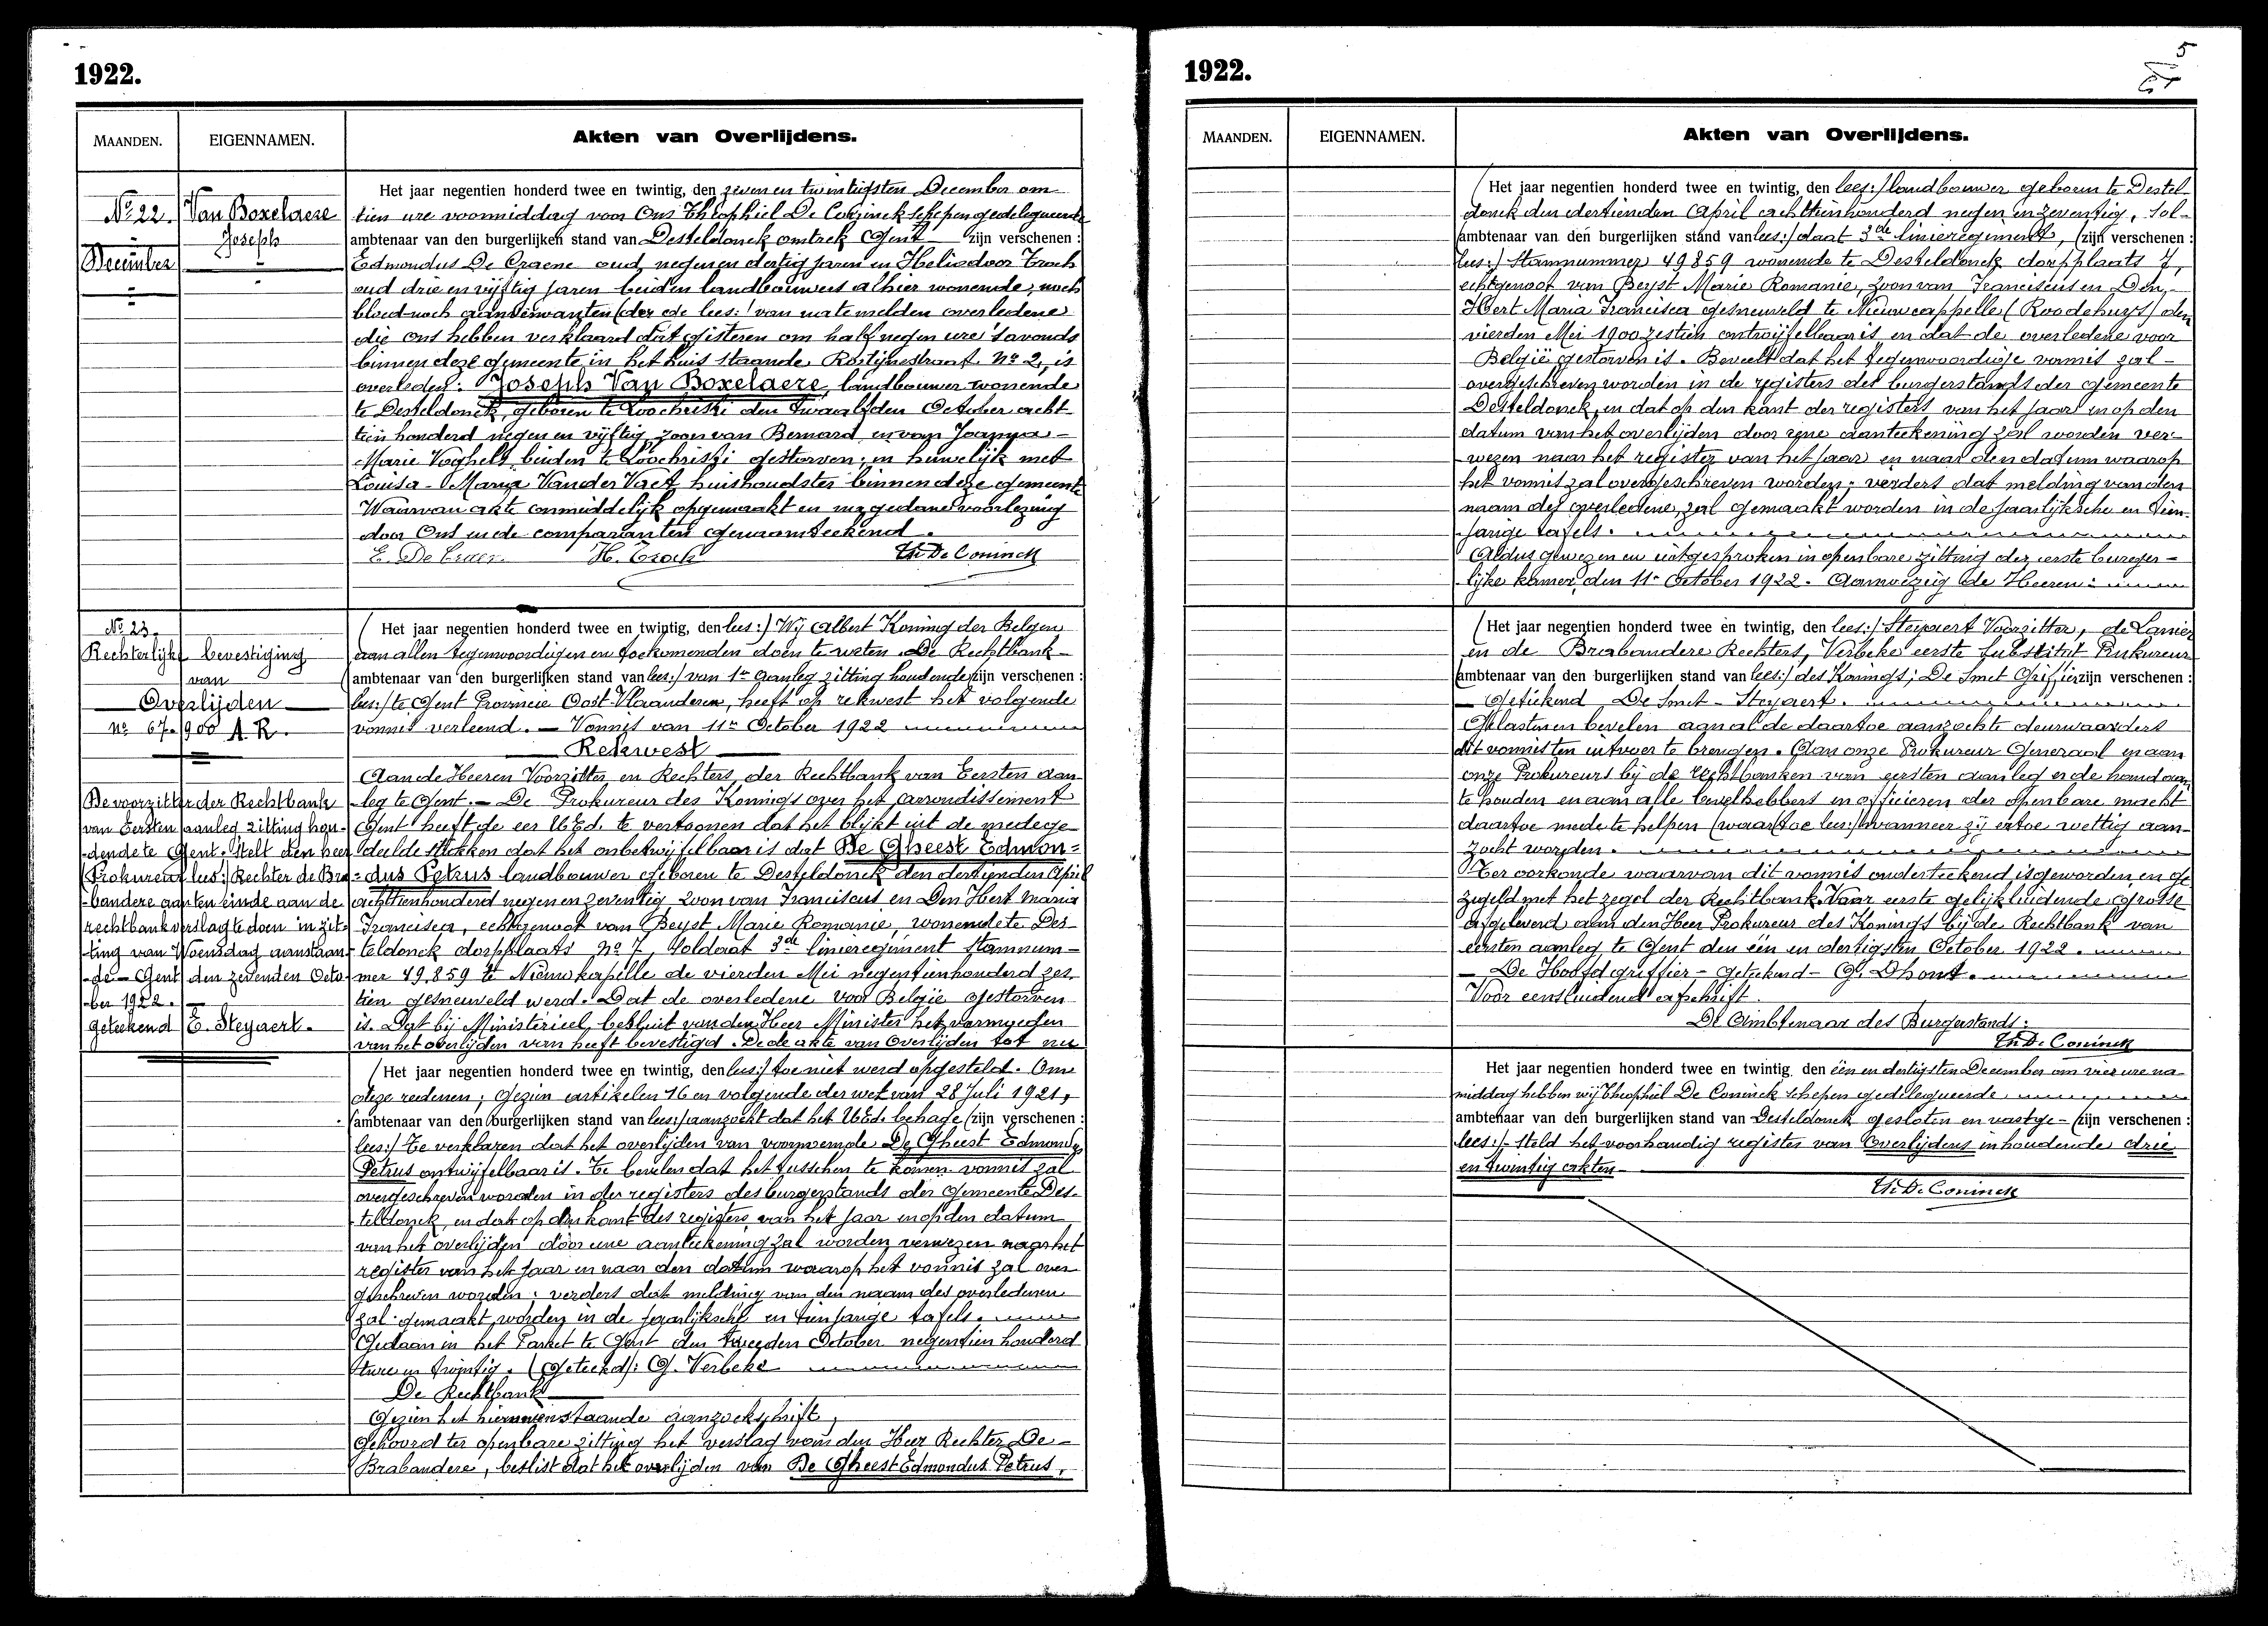 1922.
MAANDEN. EIGENNAMEN. Akten van Overlijdens.
No 22. Van Boxelaere
Joseph
December
Het jaar negentien honderd twee en twintig, den zeven en twintigsten December om
tien ure voormiddag voor Ons Théophiel De Coninck schepen gedelegueerde
ambtenaar van den burgerlijken stand van Desteldonck omtrek Gent zijn verschenen :
Edmondus De Craene oud negen en dertig jaren en Heliodoor Troch
oud drie en vijftig jaren beiden landbouwers alhier wonende, noch
bloed noch aanverwanten (der de lees:/ van na te melden overledene
die ons hebben verklaard dat gisteren om half negen ure 's avonds
binnen deze gemeente in het huis staande Rostijnestraat No 2, is
overleden: Joseph Van Boxelaere, landbouwer wonende
te Desteldonck, geboren te Loochristi den twaalfden October acht-
tien honderd negen en vijftig, zoon van Bernard en van Joanna-
Marie Voghels, beiden te Loochristi gestorven; in huwelijk met
Louisa-Maria Van der Vaet, huishoudster binnen deze gemeente
Waarvan akte onmiddelijk opgemaakt en na gedane voorlezing
door Ons en de comparanten genaamteekend.
H. Troch Th. De Coninck
No 23.
Rechterlijke bevestiging
van
Overlijden
no 67.900 A.R.
De voorzitter der Rechtbank
van Eersten aanleg zitting hou-
-dende te Gent. Stelt den heer
(Prokureur lees:/ Rechter de Bra-
-bandere aan ten einde aan de
rechtbank verslag te doen in zit-
-ting van Woensdag aanstaan-
-de - Gent den zevenden Octo-
-ber 1922.
geteekend E. Steyaert.
(Het jaar negentien honderd twee en twintig, den lees:/ Wij Albert Koning der Belgen
aan allen tegenwoordigen en toekomenden doen te weten. De Rechtbank-
(ambtenaar van den burgerlijken stand van lees:/ van 1n aanleg zitting houdende (zijn verschenen :
lees:/ te Gent Provincie Oost-Vlaanderen, heeft op rekwest het volgende
vonnis verleend. — Vonnis van 11n October 1922
Rekwest
Aan de Heeren Voorzitter en Rechters der Rechtbank van Eersten aan-
leg te Gent. - De Prokureur des Konings over het arrondissement
Gent heeft de eer UEd. te vertoonen dat het blijkt uit de medege-
deelde stukken dat het onbetwijfelbaar is dat De Gheest Edmon=
=dus Petrus landbouwer geboren te Desteldonck den dertienden April
achttienhonderd negen en zeventig, zoon van Franciscus en Den Hert Maria
Francisca, echtgenoot van Beyst Marie Romanie, wonende te Des-
teldonck dorpplaats No 7, soldaat 3de linieregiment stamnum-
mer 49.859 te Nieuwkapelle de vierden Mei negentienhonderd zes-
tien gesneuveld werd. Dat de overledene voor België gestorven
is. Dat bij Ministerieel besluit van den Heer Minister het vermoeden
van het overlijden van heeft bevestigd. De de akte van Overlijden tot nu
(Het jaar negentien honderd twee en twintig, den lees:/ toe niet werd opgesteld. Om
deze redenen; Gezien artikelen 16 en volgende der wet van 28 Juli 1921,
(ambtenaar van den burgerlijken stand van lees:/ aanzoekt dat het UEd. behage (zijn verschenen :
lees:/ te verklaren dat het overlijden van voornoemde De Gheest Edmondus
Petrus ontwijfelbaar is. Te bevelen dat het tusschen te komen vonnis zal
overgeschreven worden in der registers des burgerstands der gemeente Des-
teldonck, en dat op den kant des registers van het jaar en op den datum
van het overlijden door eene aanteekening zal worden verwezen naar het
register van het jaar en naar den datum waarop het vonnis zal over-
geschreven worden; verders dat melding van den naam des overledenen
zal gemaakt worden in de jaarlijksche en tienjarige tafels.
Gedaan in het Parket te Gent den tweeden October negentien honderd
twee en twintig. (Geteekd): G. Verbeke
De Rechtbank
Gezien het hiernevenstaande aanzoekschrift,
Gehoord ter openbare zitting het verslag van den Heer Rechter De-
Brabandere, beslist dat het overlijden van De Gheest Edmondus Petrus,
1922.
5
MAANDEN. EIGENNAMEN. Akten van Overlijdens.
(Het jaar negentien honderd twee en twintig, den lees:/ landbouwer geboren te Destel-
donck den dertienden April achttienhonderd negen en zeventig, sol-
(ambtenaar van den burgerlijken stand van lees:/ daat 3de linieregiment, (zijn verschenen :
lees:/ Stamnummer 49859 wonende te Desteldonck dorpplaats 7,
echtgenoot van Beyst Marie Romanie, zoon van Franciscus en Den
Hert Maria Francisca gesneuveld te Nieuwcappelle (Roodehuys) den
vierden Mei 1900 zestien ontwijfelbaar is en dat de overledene voor
België gestorven is. Beveelt dat het tegenwoordige vonnis zal-
overgeschreven worden in de registers des burgerstands der gemeente
Desteldonck, en dat op den kant der registers van het jaar en op den
datum van het overlijden door eene aanteekening zal worden ver-
wezen naar het register van het jaar en naar den datum waarop
het vonnis zal overgeschreven worden; verders dat melding van den
naam des overledene, zal gemaakt worden in de jaarlijksche en tien-
jarige tafels.
Aldus gewezen en uitgesproken in openbare zitting der eerste burger-
lijke kamer, den 11n October 1922. Aanwezig de Heeren:
(Het jaar negentien honderd twee en twintig, den lees:/ Steyaert Voorzitter, de Lanier
en de Brabandere Rechters, Verbeke eerste substitut Prokureur
(ambtenaar van den burgerlijken stand van lees:/ des Konings; De Smet Griffier zijn verschenen :
— Geteekend De Smet - Steyaert.
Gelasten en bevelen aan al de daartoe aanzochte deurwaarders
dit vonnis ten uitvoer te brengen. Aan onze Prokureur Generaal en aan
onze Prokureurs bij de rechtbanken van eersten aanleg er de hand aan
te houden en aan alle bevelhebbers en officieren der openbare macht
daartoe mede te helpen (waartoe lees:/ wanneer zij ertoe wettig aan-
zocht worden.
Ter oorkonde waarvan dit vonnis onderteekend is geworden en ge-
zegeld met het zegel der Rechtbank. Voor eerste gelijkluidende grosse
afgeleverd aan den Heer Prokureur des Konings bij de Rechtbank van
eersten aanleg te Gent den één en dertigsten October 1922.
— De Hoofdgriffier - geteekend - G. Dhont.
Voor eensluidend afschrift.
De Ambtenaar des Burgerstands:
Th. De Coninck
Het jaar negentien honderd twee en twintig, den één en dertigsten December om vier ure na-
middag hebben wij Theophiel De Coninck schepen gedelegueerde
ambtenaar van den burgerlijken stand van Desteldonck gesloten en vastge- (zijn verschenen :
lees:/ steld het voorhandig register van Overlijdens inhoudende drie
en twintig akten
Th. De Coninck